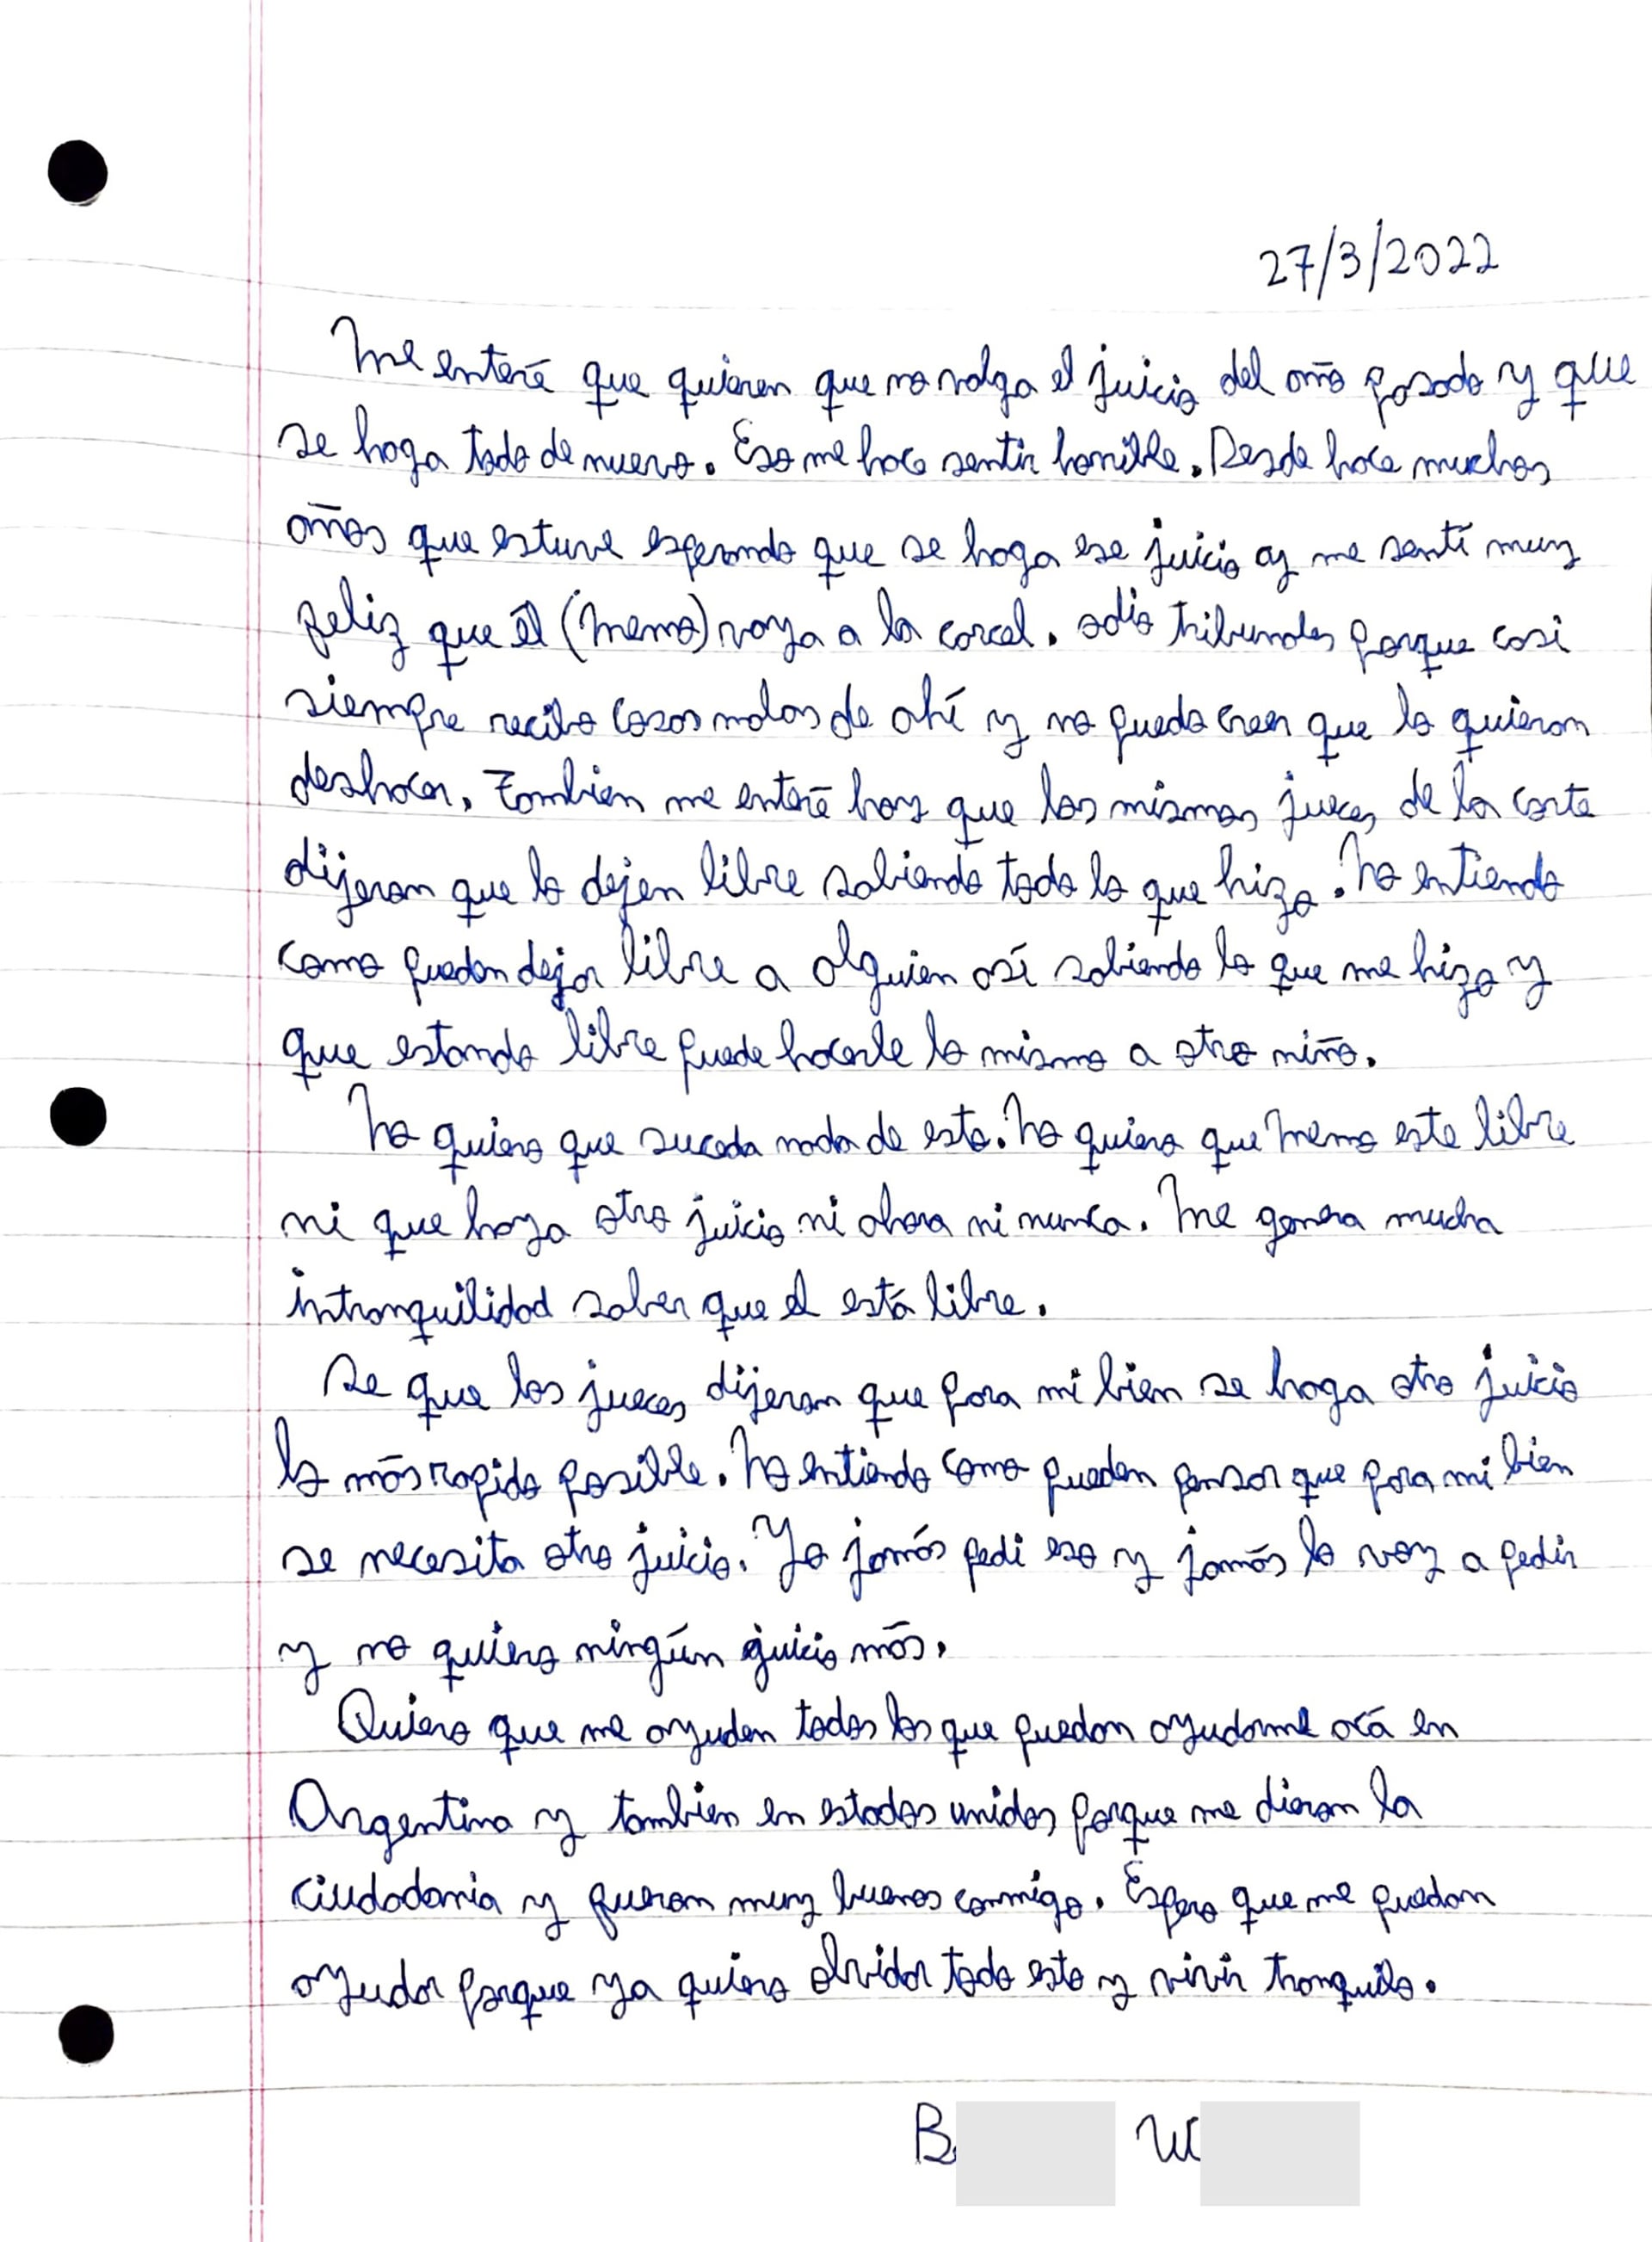 27/3/2022
Me enteré que quieren que no valga el juicio del año pasado y que
se haga todo de nuevo. Eso me hace sentir horrible. Desde hace muchos
años que estuve esperando que se haga ese juicio y me sentí muy
feliz que él (Memo) vaya a la carcel. odio tribunales porque casi
siempre recibo cosas malas de ahí y no puedo creer que lo quieran
deshacer. Tambien me enteré hoy que los mismos jueces de la corte
dijeron que lo dejen libre sabiendo todo lo que hizo. No entiendo
como pueden dejar libre a alguien así sabiendo lo que me hizo y
que estando libre puede hacerle lo mismo a otro niño.
No quiero que suceda nada de esto. No quiero que Memo este libre
ni que haya otro juicio ni ahora ni nunca. Me genera mucha
intranquilidad saber que el está libre.
Se que los jueces dijeron que para mi bien se haga otro juicio
lo más rapido posible. No entiendo como pueden pensar que para mi bien
se necesita otro juicio. Yo jamás pedi eso y jamás lo voy a pedir
y no quiero ningún juicio más.
Quiero que me ayuden todos los que puedan ayudarme acá en
Argentina y tambien en estados unidos porque me dieron la
ciudadania y fueron muy buenos conmigo. Espero que me puedan
ayudar porque ya quiero olvidar todo esto y vivir tranquilo.
B W